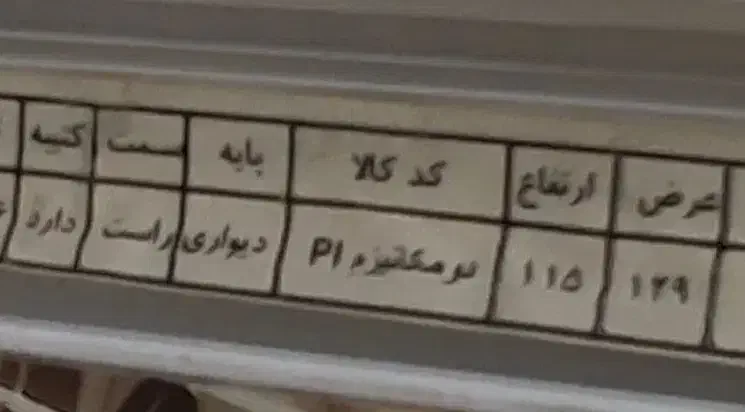 عرض ارتفاع کد کالا پایه سمت کتیبه
۱۲۹ ۱۱۵ دو مکانیزم P1 دیواری راست دارد